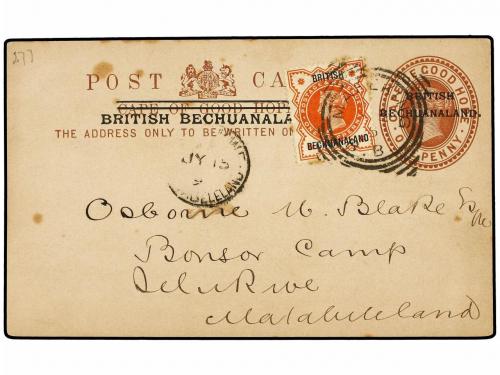 277
POST CA
CAPE OF GOOD HOP
BRITISH BECHUANALA
THE ADDRESS ONLY TO BE WRITTEN ON
BRITISH
BECHUANALAND
CAPE OF GOOD HOPE
BRITISH
BECHUANALAND.
ONE PENNY
JY 15
Osborne N. Blake Esq
Bonsor Camp
Selukwe
Matabeleland